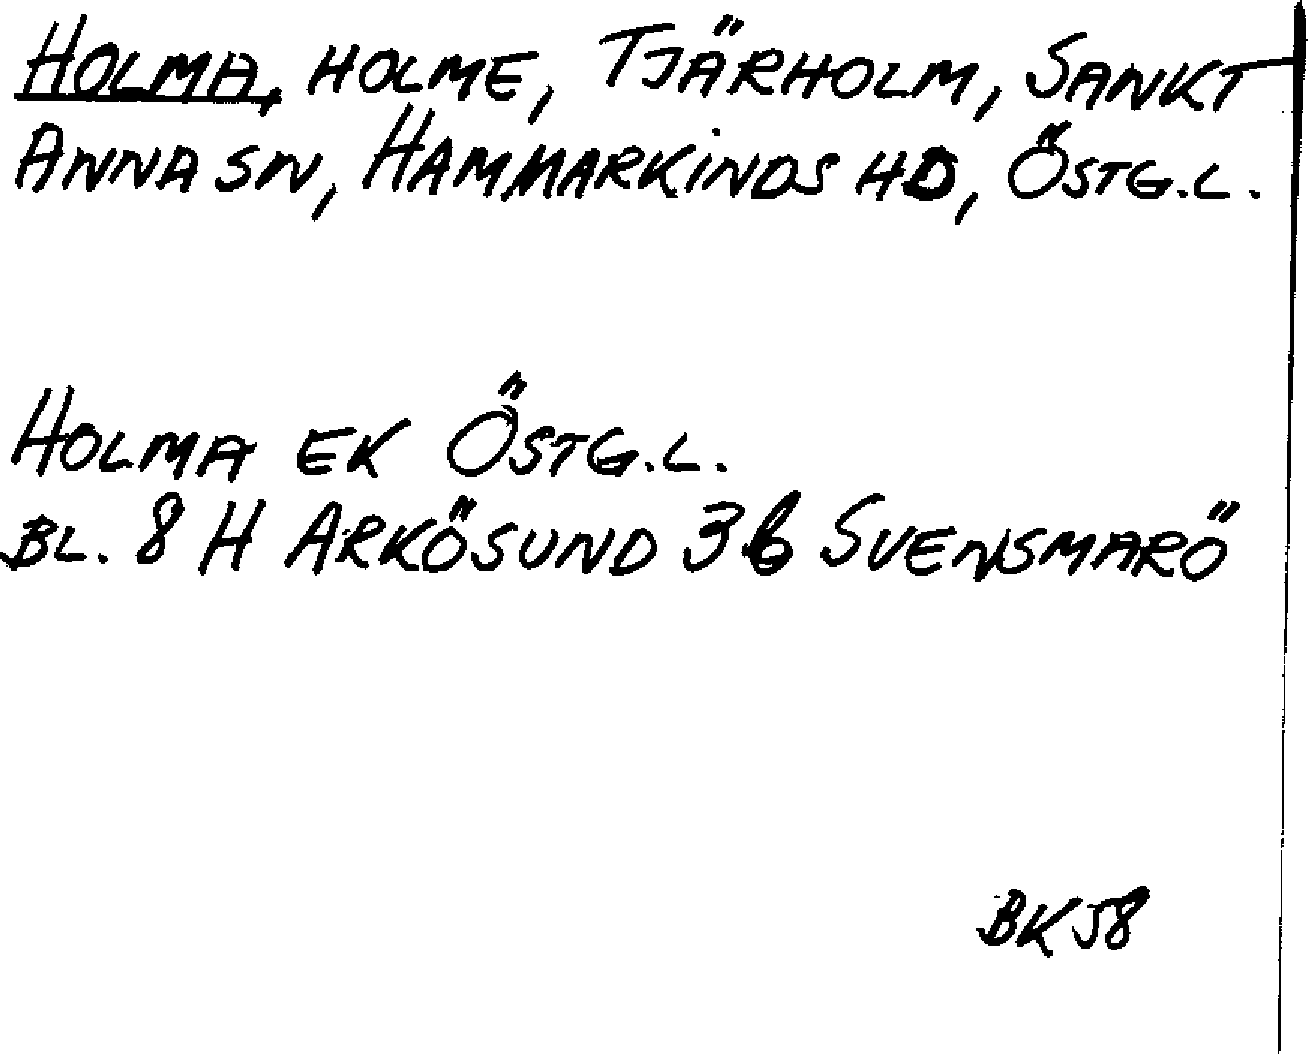 HOLMA, HOLME, TJÄRHOLM, SANKT
ANNA SN, HAMMARKINDS HD, ÖSTG.L.
HOLMA EK ÖSTG.L.
BL. 8 H ARKÖSUND 3b SVENSMARÖ
BK58